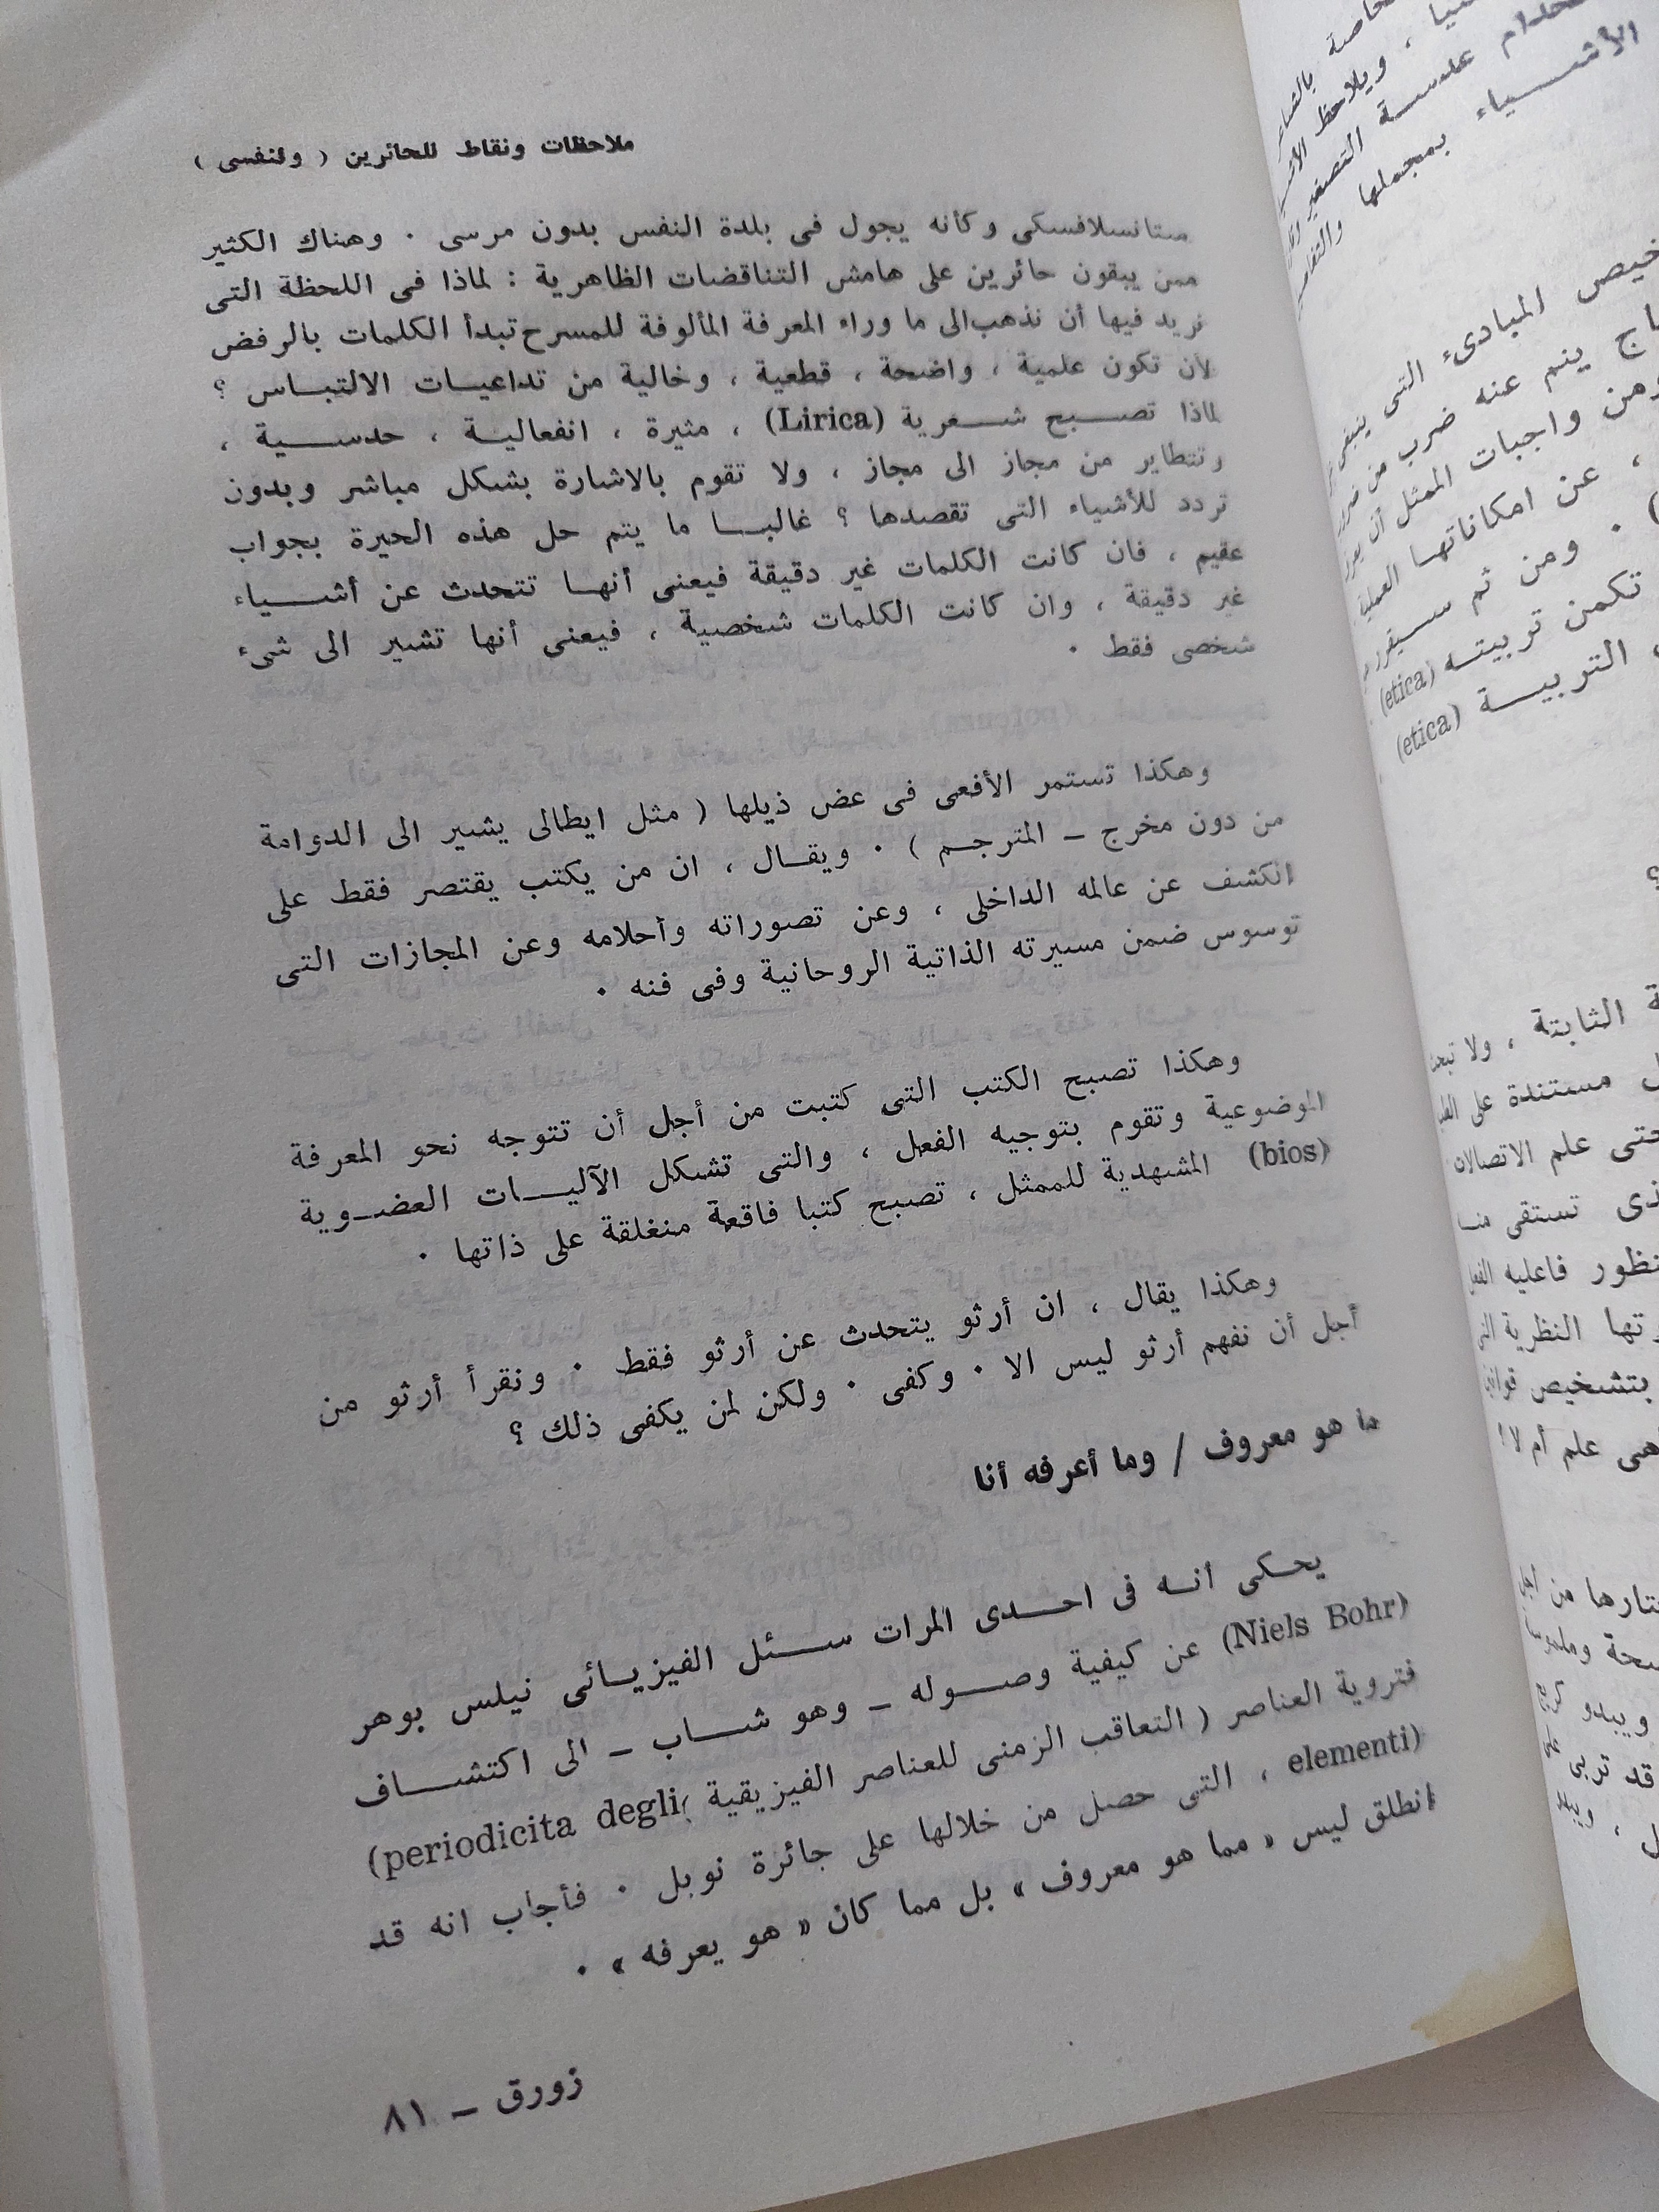 ملاحظات ونقاط للحائرين ( ولنفسى )
ستانسلافسكى وكأنه يجول فى بلدة النفس بدون مرسى . وهناك الكثير
ممن يبقون حائرين على هامش التناقضات الظاهرية : لماذا فى اللحظة التى
نريد فيها أن نذهب الى ما وراء المعرفة المألوفة للمسرح تبدأ الكلمات بالرفض
لأن تكون علمية ، واضحة ، قطعية ، وخالية من تداعيات الالتباس ؟
لماذا تصبح شعرية (Lirica) ، مثيرة ، انفعالية ، حدسية ،
وتتطاير من مجاز الى مجاز ، ولا تقوم بالاشارة بشكل مباشر وبدون
تردد للأشياء التى تقصدها ؟ غالبا ما يتم حل هذه الحيرة بجواب
عقيم ، فان كانت الكلمات غير دقيقة فيعنى أنها تتحدث عن أشياء
غير دقيقة ، وان كانت الكلمات شخصية ، فيعنى أنها تشير الى شىء
شخصى فقط .
وهكذا تستمر الأفعى فى عض ذيلها ( مثل ايطالى يشير الى الدوامة
من دون مخرج – المترجم ) . ويقال ، ان من يكتب يقتصر فقط على
انكشف عن عالمه الداخلى ، وعن تصوراته وأحلامه وعن المجازات التى
توسوس ضمن مسيرته الذاتية الروحانية وفى فنه .
وهكذا تصبح الكتب التى كتبت من أجل أن تتوجه نحو المعرفة
الموضوعية وتقوم بتوجيه الفعل ، والتى تشكل الآليات العضوية
(bios) المشهدية للممثل ، تصبح كتبا فاقعة منغلقة على ذاتها .
وهكذا يقال ، ان أرثو يتحدث عن أرثو فقط . ونقرأ أرثو من
أجل أن نفهم أرثو ليس الا . وكفى . ولكن لمن يكفى ذلك ؟
ما هو معروف / وما أعرفه أنا
يحكى أنه فى احدى المرات سئل الفيزيائى نيلس بوهر
(Niels Bohr) عن كيفية وصوله – وهو شاب – الى اكتشاف
فتروية العناصر ( التعاقب الزمنى للعناصر الفيزيقية (periodicita degli
elementi) ، التى حصل من خلالها على جائزة نوبل . فأجاب انه قد
انطلق ليس « مما هو معروف » بل مما كان « هو يعرفه » .
زورق – ٨١
الأشياء بمجملها
المبادىء التى
ينم عنه ضرب من
ومن واجبات الممثل أن
، عن امكاناتها العملية
. ومن ثم
تكمن تربيته (etica)
التربية (etica)
الثابتة ، ولا
مستندة على
حتى علم الاتصالات
تستقى
فاعليه الفعل
النظرية التى
بتشخيص
علم أم لا !
من أجل
ويبدو
قد تربى على